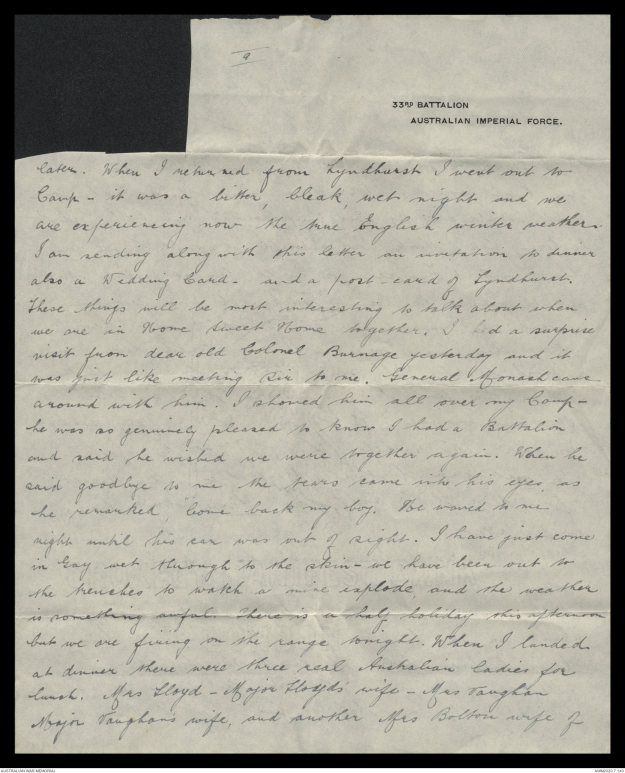 9
33RD BATTALION
AUSTRALIAN IMPERIAL FORCE.
later. When I returned from Lyndhurst I went out to
Camp - it was a bitter, bleak, wet night and we
are experiencing now the true English winter weather.
I am sending along with this letter an invitation to dinner
also a Wedding Card - and a post-card of Lyndhurst.
These things will be most interesting to talk about when
we are in Home Sweet Home together. I had a surprise
visit from dear old Colonel Burnage yesterday and it
was just like meeting Sir to me. General Monash came
around with him. I showed him all over my Camp -
he was so genuinely pleased to know I had a Battalion
and said he wished we were together again. When he
said goodbye to me the tears came into his eyes as
he remarked "Come back my boy. He waved to me
right until his car was out of sight. I have just come
in Gay wet through to the skin - we have been out to
the trenches to watch a mine explode and the weather
is something awful. There is a half holiday this afternoon
but we are firing on the range tonight. When I landed
at dinner there were three real Australian ladies for
lunch. Mrs Lloyd - Major Lloyds' wife - Mrs Vaughan
Major Vaughan's wife, and another Mrs Bolton wife of
AUSTRALIAN WAR MEMORIAL